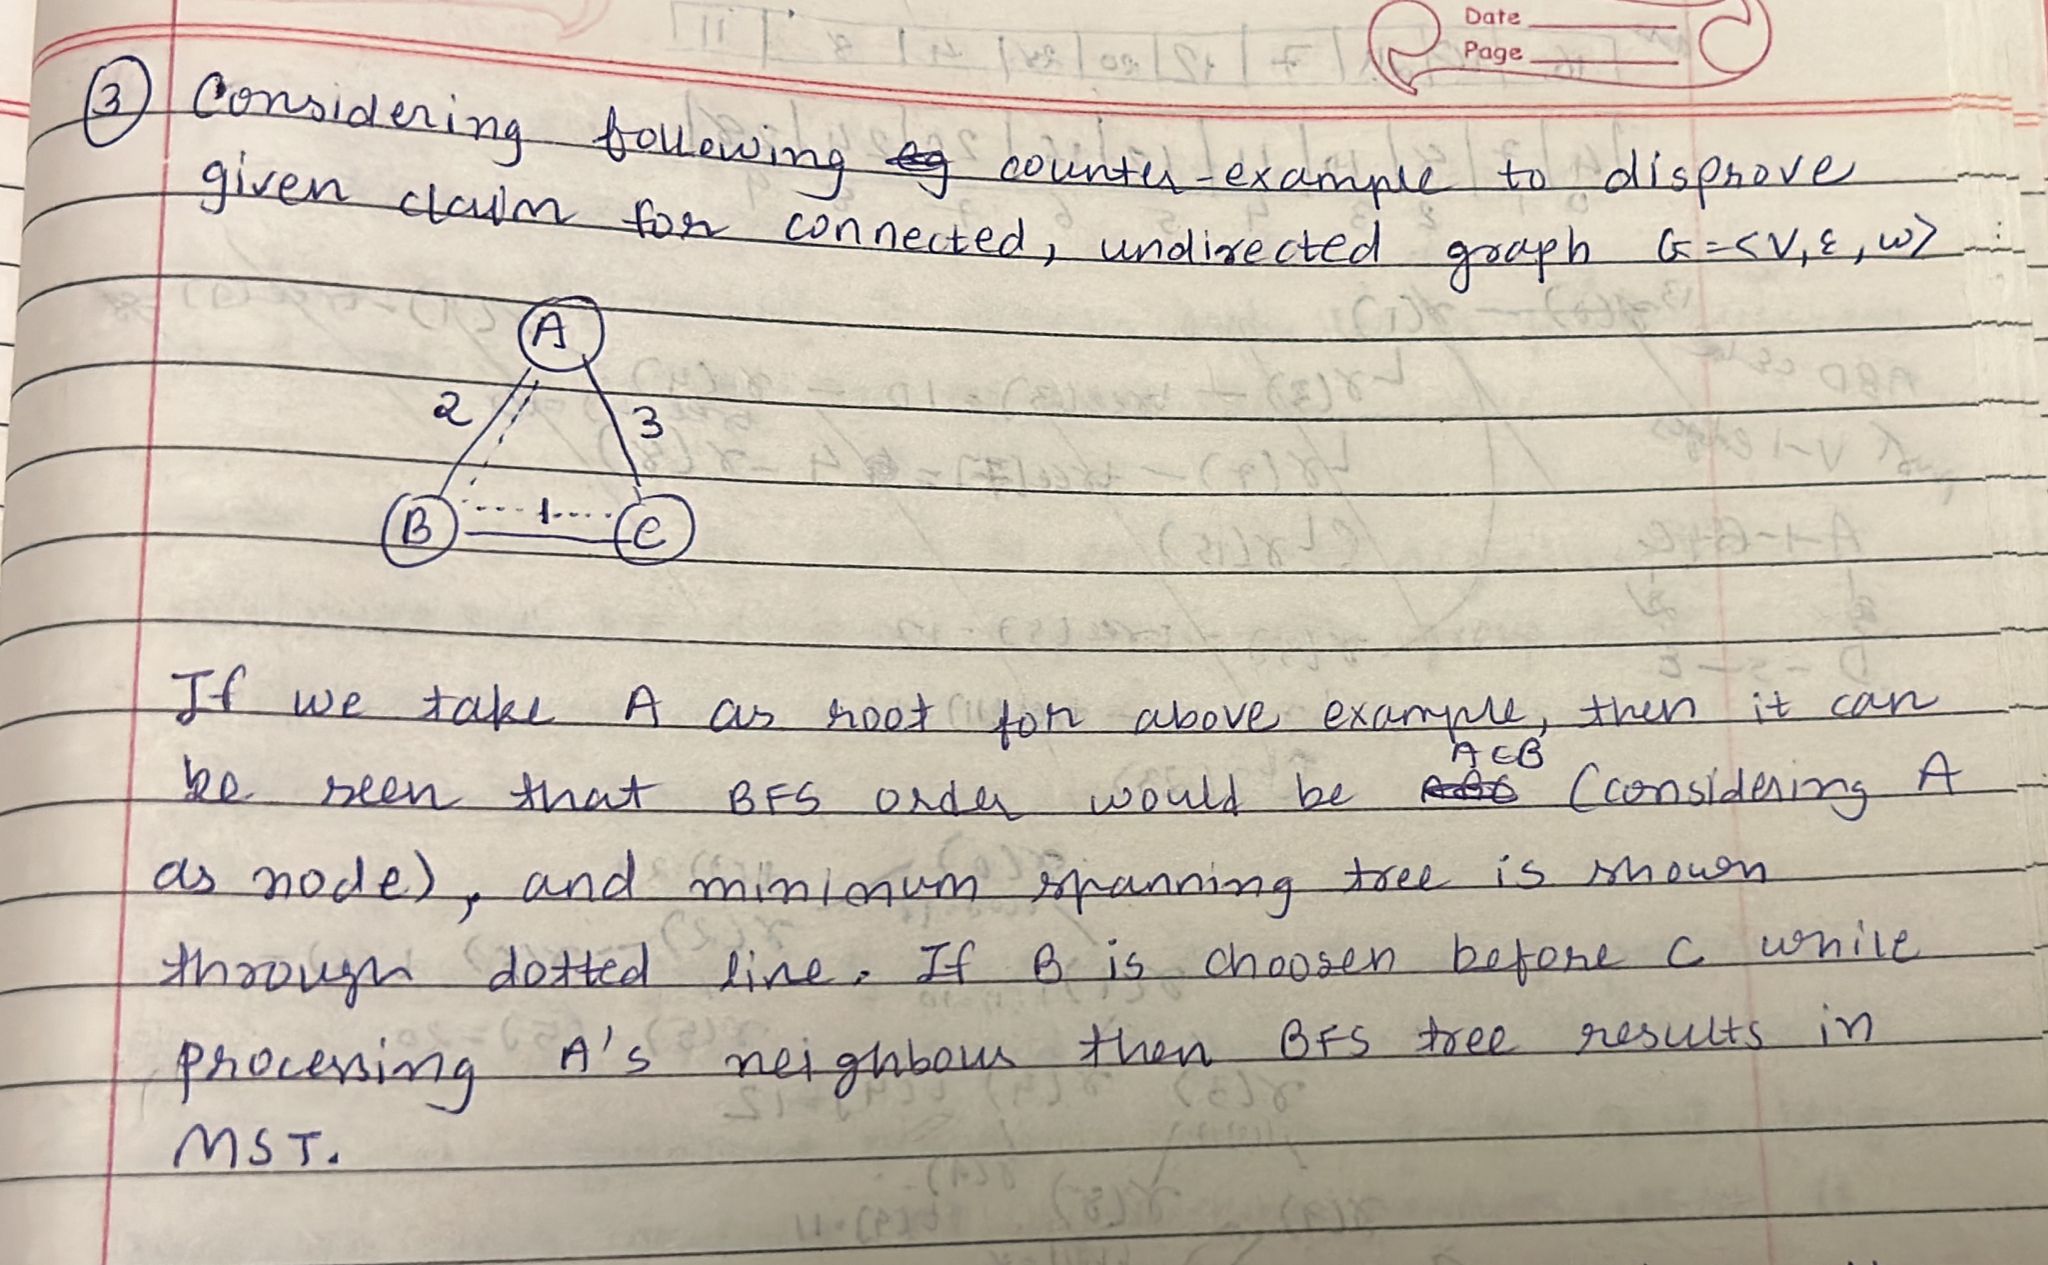 Date
Page
③ Considering following counter-example to disprove
given claim for connected, undirected graph G=<V,E,w>
A
2 3
B 1 C
If we take A as root for above example, then it can
ACB
be seen that BFS order would be (considering A
as node), and minimum spanning tree is shown
through dotted line. If B is choosen before C while
processing A's neighbours then BFS tree results in
MST.